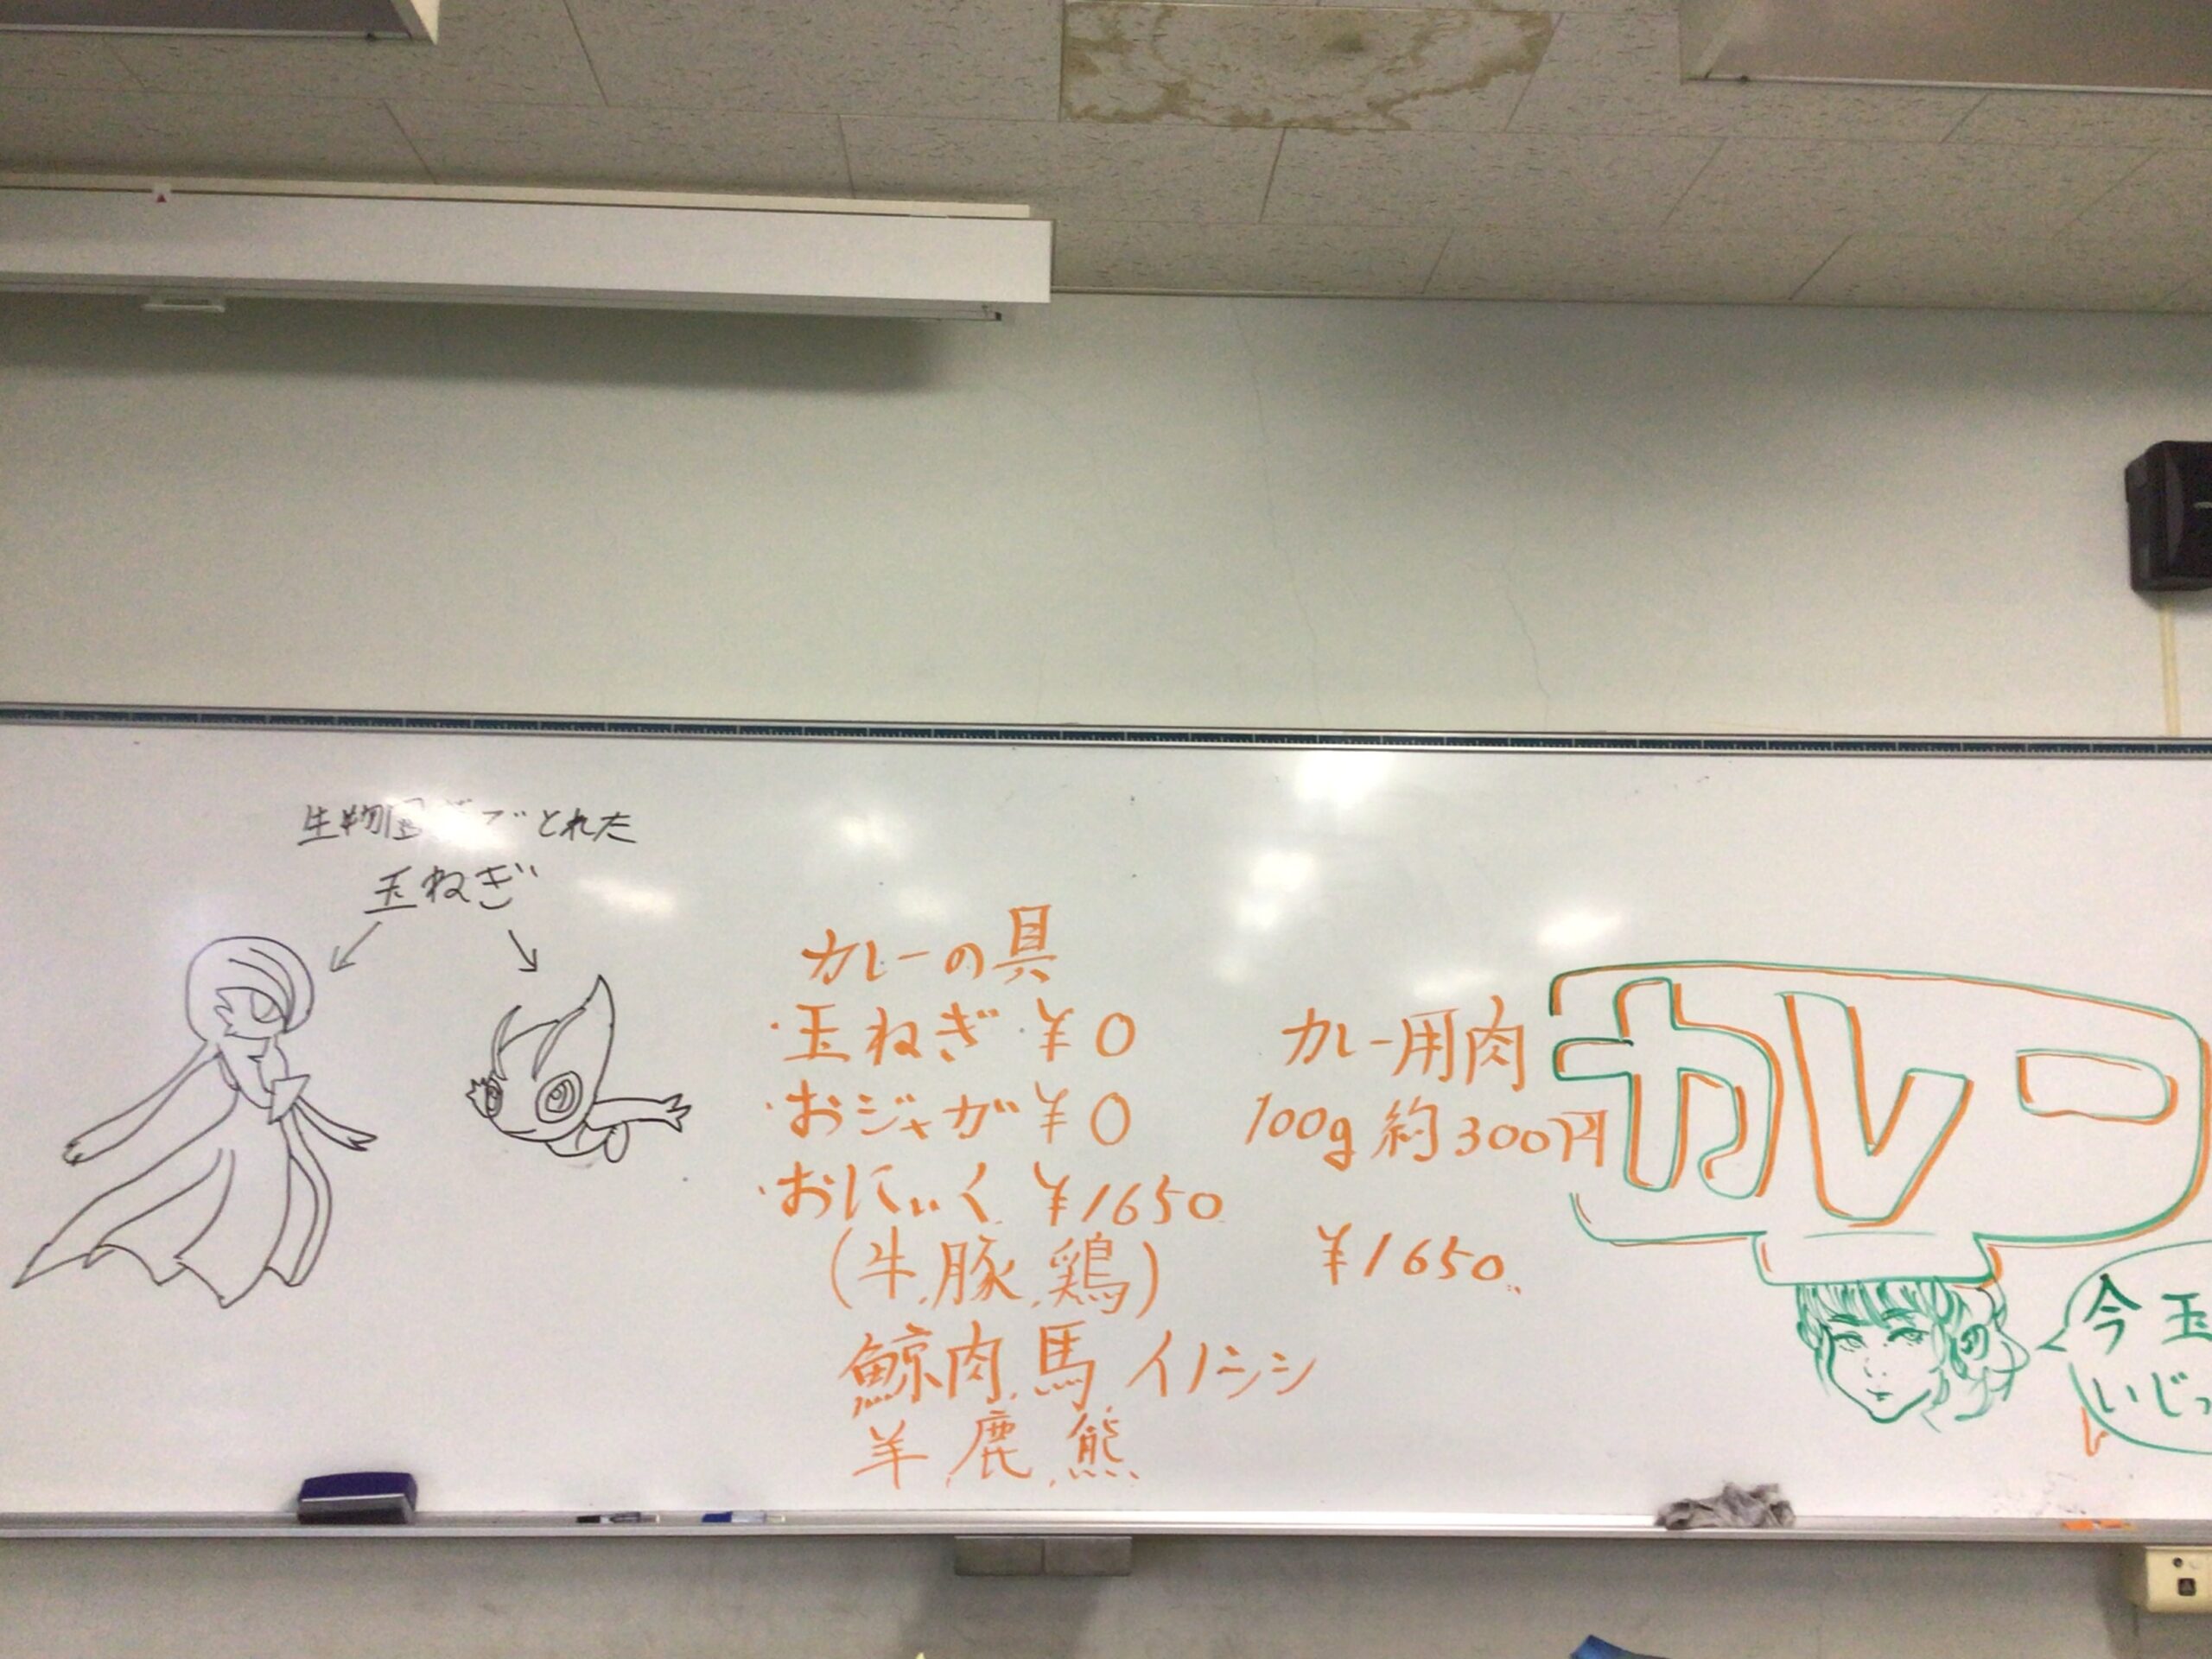 とれた
玉ねぎ
カレーの具
・玉ねぎ ¥0
・おジャガ ¥0
・おにぃく ¥1650
(牛、豚、鶏)
鯨肉、馬 イノシシ
羊、鹿、熊
カレー用肉
100g 約300円
¥1650
カレー
今 玉
いじっ